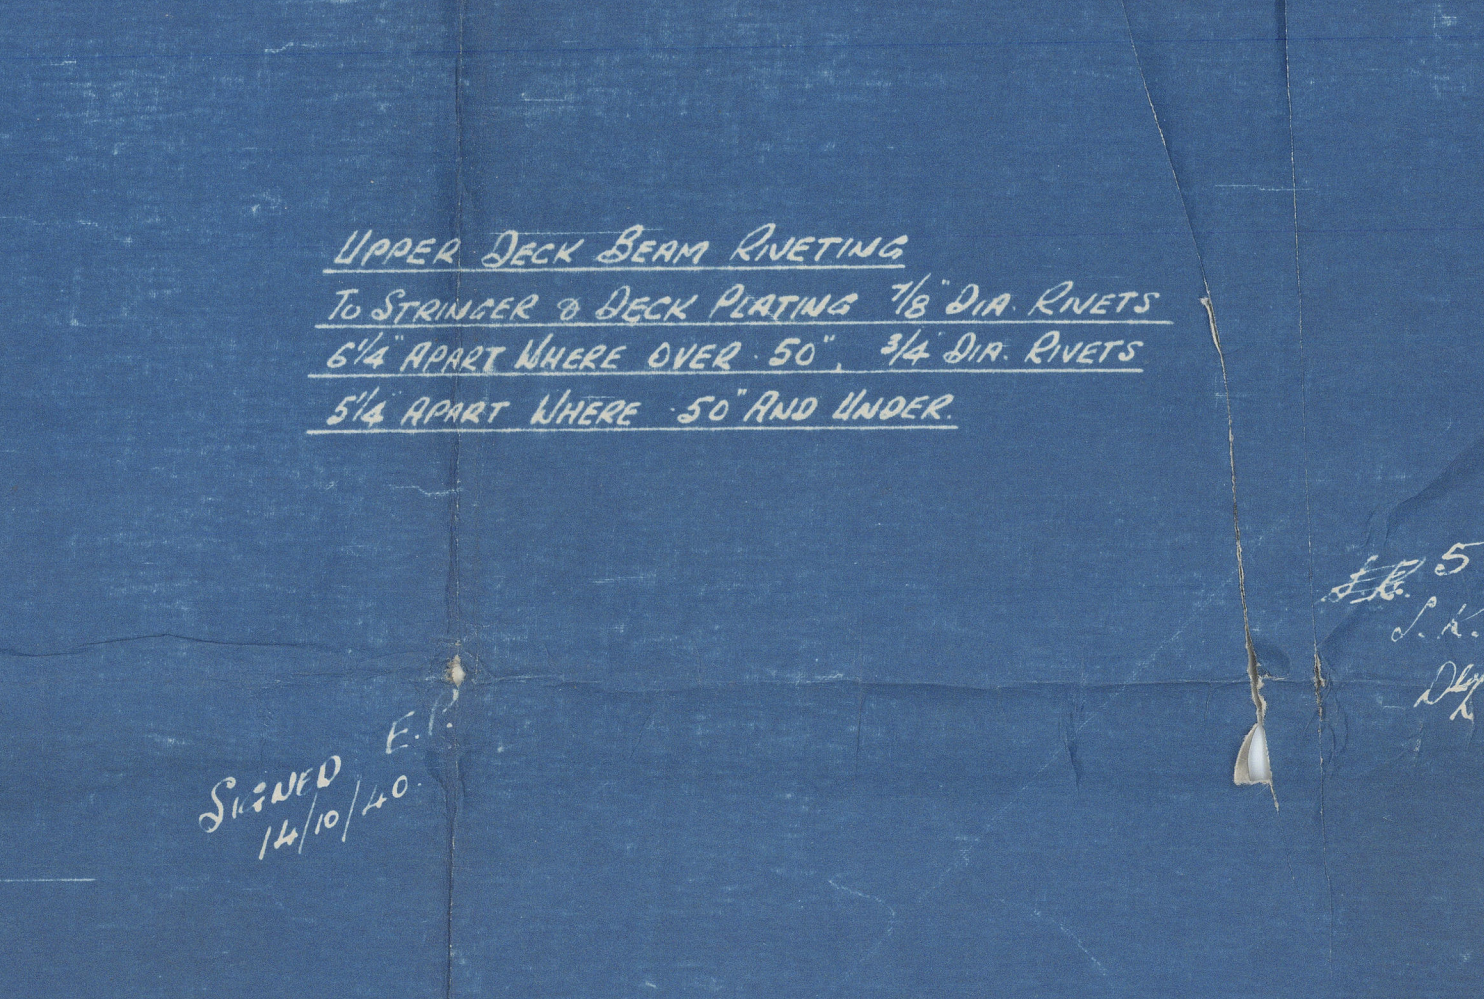 UPPER DECK BEAM RIVETING
TO STRINGER & DECK PLATING 7/8" DIA. RIVETS
6 1/4" APART WHERE OVER ·50", 3/4" DIA. RIVETS
5 1/4" APART WHERE ·50" AND UNDER.
SIGNED E.
14/10/40.
5
S. K.